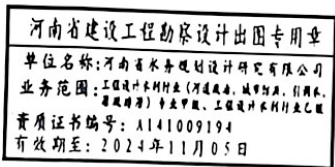 河南省建设工程勘察设计出图专用章
单位名称:河南省水务规划设计研究有限公司
业务范围:工程设计水利行业(河道整治、城市防洪、引调水、
灌溉排涝)专业甲级、工程设计水利行业乙级
资质证书编号:A141009194
有效期至:2024年11月05日